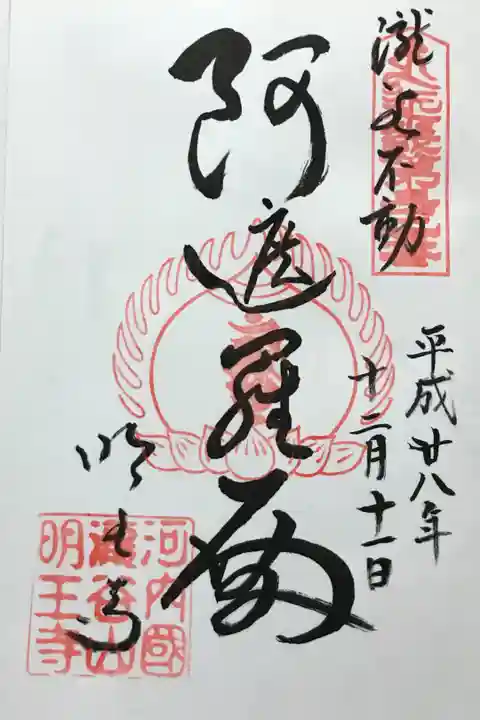 瀧谷不動
平成廿八年
十二月十一日
阿遮羅殿
明王寺
河内國
瀧谷山
明王寺